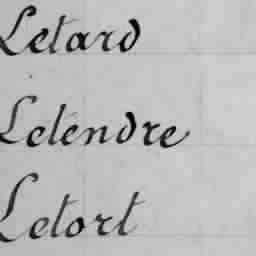 Letard
Letendre
Letort